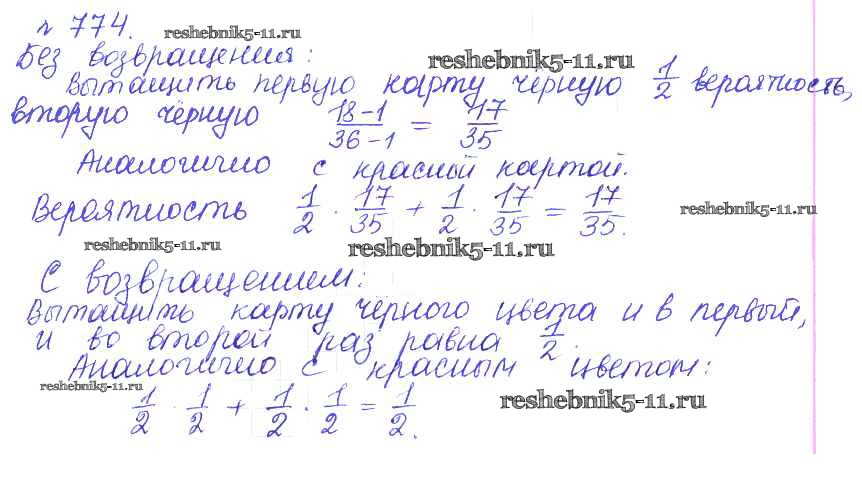 № 774. reshebnik5-11.ru
Без возвращения: reshebnik5-11.ru
Вытащить первую карту чёрную 1/2 вероятность,
вторую чёрную (18-1)/(36-1) = 17/35
Аналогично с красной картой.
Вероятность 1/2 · 17/35 + 1/2 · 17/35 = 17/35. reshebnik5-11.ru
reshebnik5-11.ru reshebnik5-11.ru
С возвращением:
Вытащить карту чёрного цвета и в первый,
и во второй раз равна 1/2.
Аналогично с красным цветом:
reshebnik5-11.ru
1/2 · 1/2 + 1/2 · 1/2 = 1/2. reshebnik5-11.ru